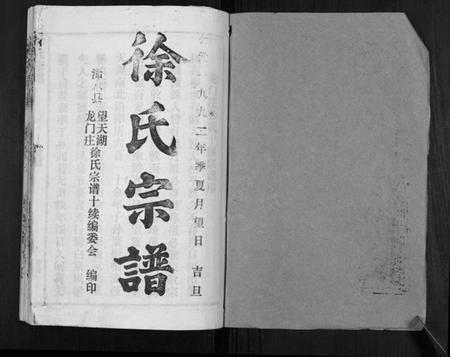 九九二年季夏月望日 吉旦
徐氏宗譜
望天湖
浠水县
龙门庄徐氏宗谱十续编委会 编印